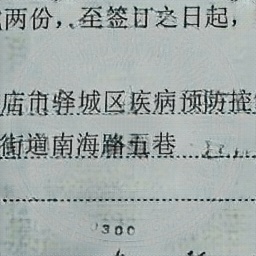 两份,至签订之日起,
店市驿城区疾病预防控
街道南海路五巷
300